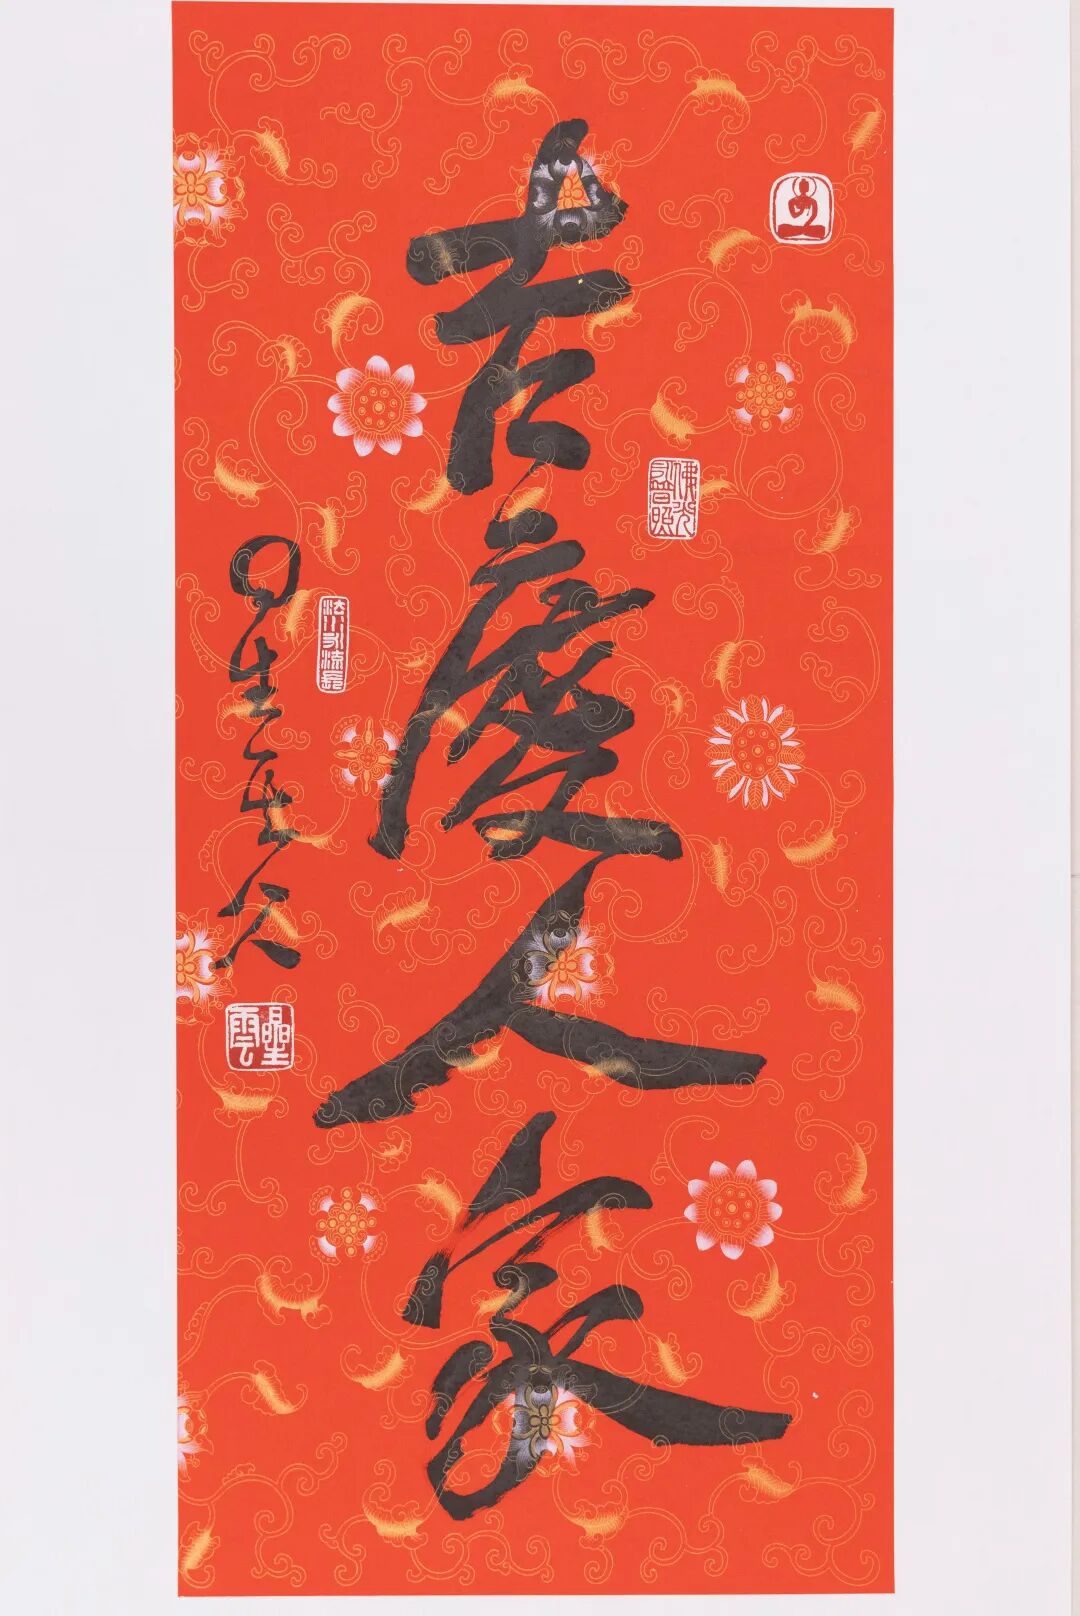 吉慶人家
佛光永普照
法水永流長
星雲
星雲